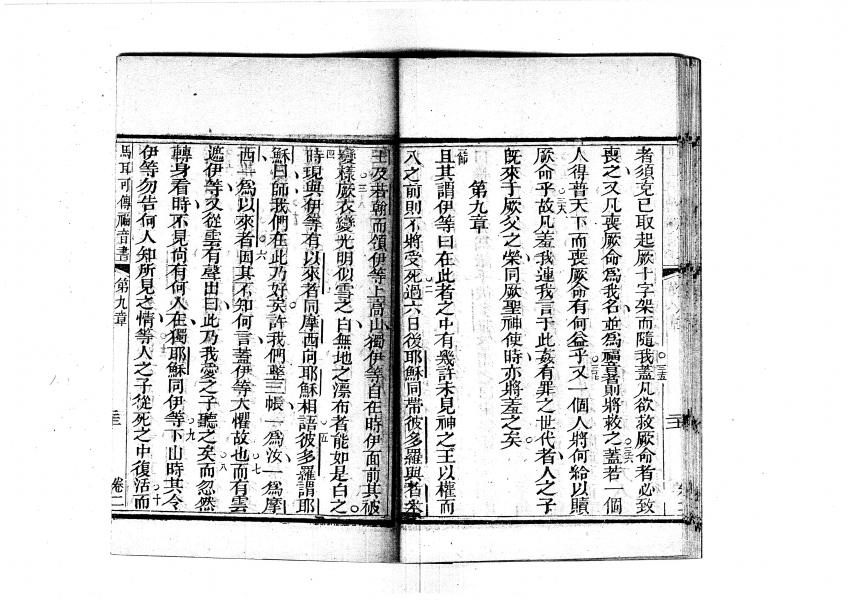 者須克已取起厥十字架而隨我蓋凡欲救厥命者必致
喪之又凡喪厥命爲我名並爲福音者則將救之蓋若一個
人得普天下而喪厥命有何益乎又一個人將何給以贖
厥命乎故凡羞我連我言于此姦有罪之世代者人之子
旣來于厥父之榮同厥聖神使時亦將羞之矣
第九章
節
且其謂伊等曰在此者之中有幾許未見神之王以權而
入之前則不將受死過六日後耶穌同帶彼多羅與者米
王及若翰而領伊等上高山獨伊等自在時伊面前其被
變樣厥衣變光明似雪之白無地之漂布者能如是白之
時現與伊等有以來者同摩西向耶穌相語彼多羅謂耶
穌曰師我們在此乃好矣許我們整三帳一爲汝一爲摩
西一爲以來者因其不知何言蓋伊等大懼故也而有雲
遮伊等又從雲有聲出曰此乃我愛之子聽之矣而忽然
轉身看時不見尚有何人在獨耶穌同伊等下山時其令
伊等勿告何人知所見之情等人之子從死之中復活而
馬耳可傳福音書 第九章 二十三 卷二